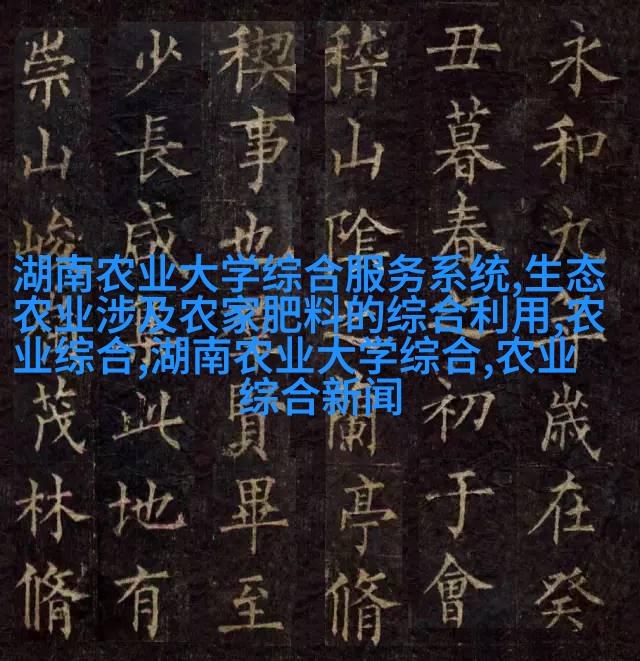 湖南农业大学综合服务系统,生态
农业涉及农家肥料的综合利用,农
业综合,湖南农业大学综合,农业
综合新闻
永和九年歲在癸
丑暮春初于會
稽山陰蘭亭脩
稧事也賢畢至
少長咸此地有
崇山峻茂林脩